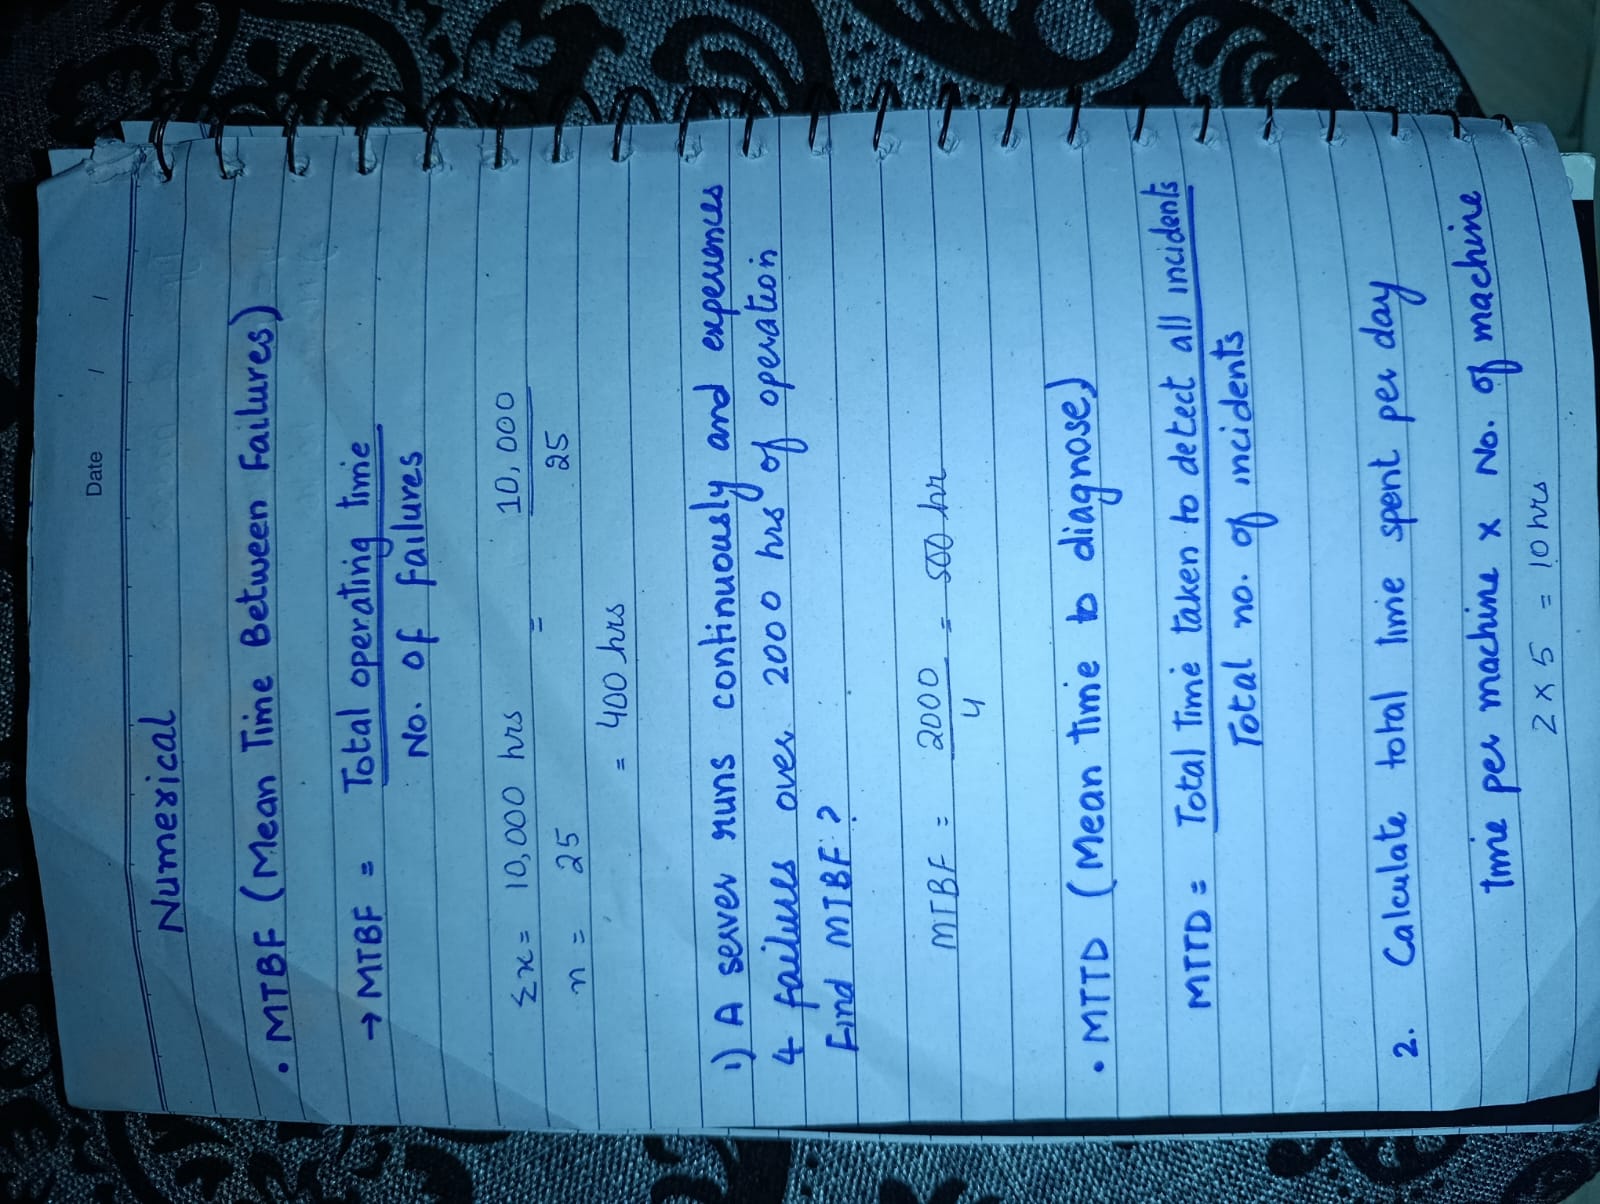 Date / /
Numerical
• MTBF (Mean Time Between Failures)
→ MTBF = Total operating time
No. of failures
Σx = 10,000 hrs = 10,000
n = 25 25
= 400 hrs
1) A server runs continuously and experiences
4 failures over 2000 hrs of operation
Find MTBF ?
MTBF = 2000 = 500 hr
4
• MTTD (Mean time to diagnose)
MTTD = Total time taken to detect all incidents
Total no. of incidents
2. Calculate total time spent per day
time per machine x No. of machine
2 x 5 = 10 hrs